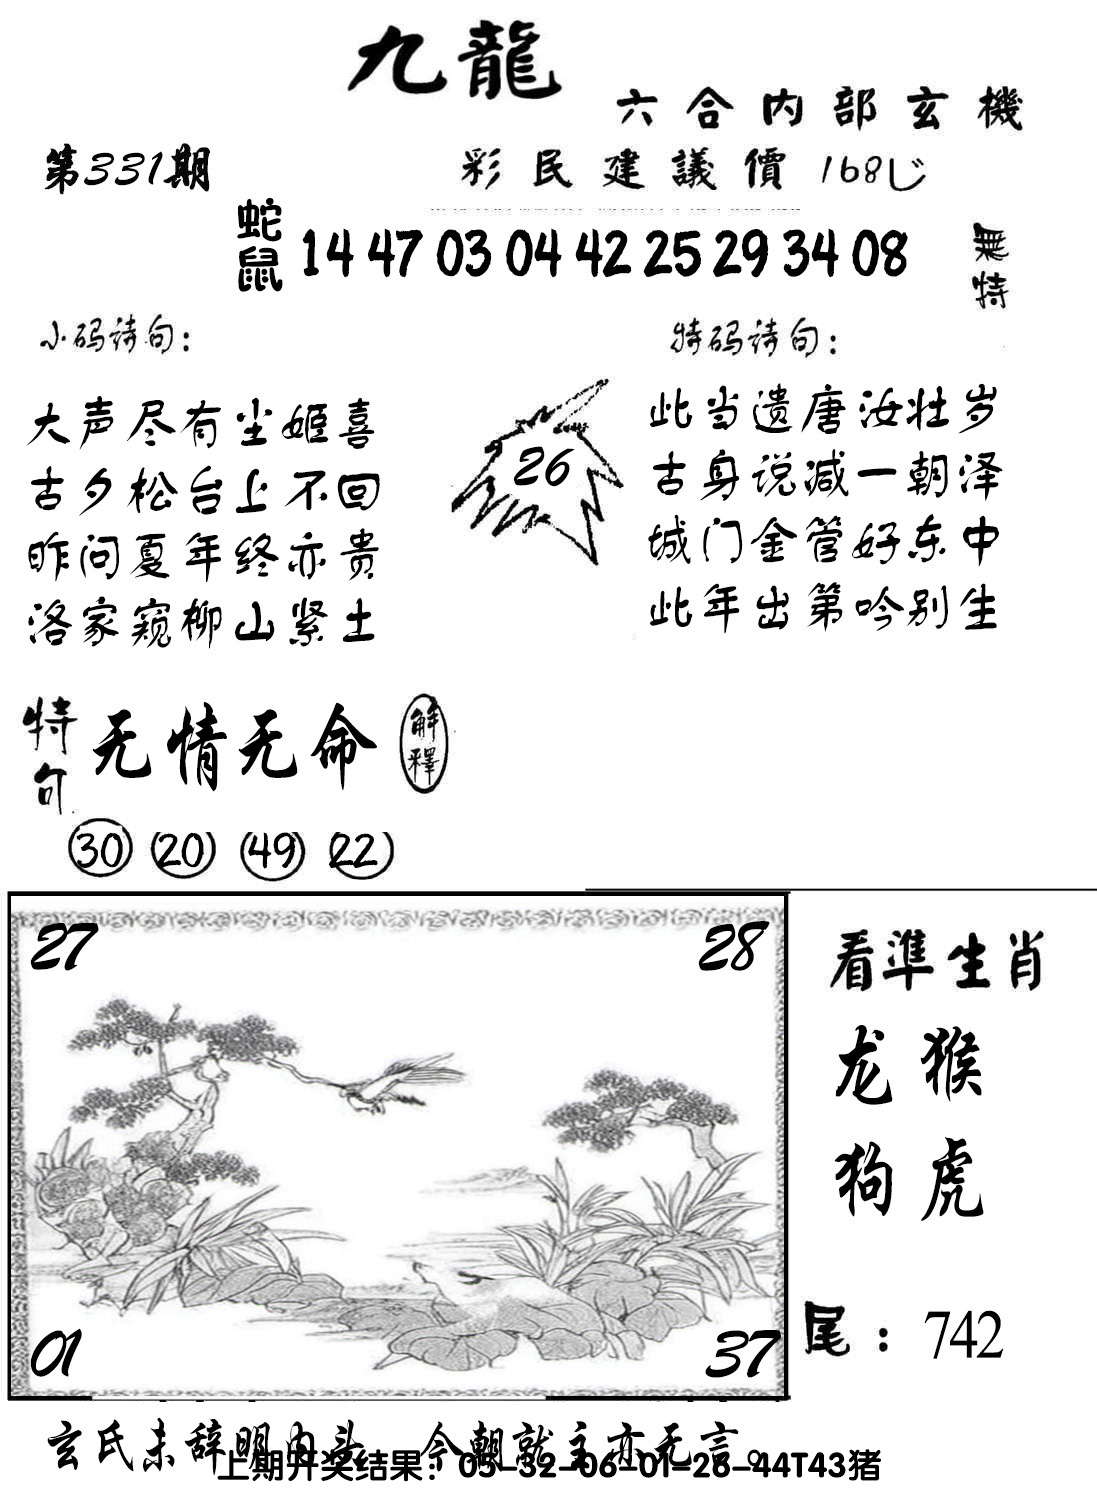 九龍
六合内部玄機
第331期
彩民建議價168
蛇鼠
14 47 03 04 42 25 29 34 08
無特
小码诗句：
大声尽有尘姬喜
古夕松台上不回
昨问夏年终亦贵
洛家窥柳山紧土
26
特码诗句：
此当遗唐汝壮岁
古身说减一朝泽
城门金管好东中
此年出第吟别生
特句
无情无命
解釋
30 20 49 22
27 28
01 37
看準生肖
龙猴
狗虎
尾：742
玄氏未辞明内头 今朝就主亦无言。
上期开奖结果：05-32-06-01-26-44T43猪